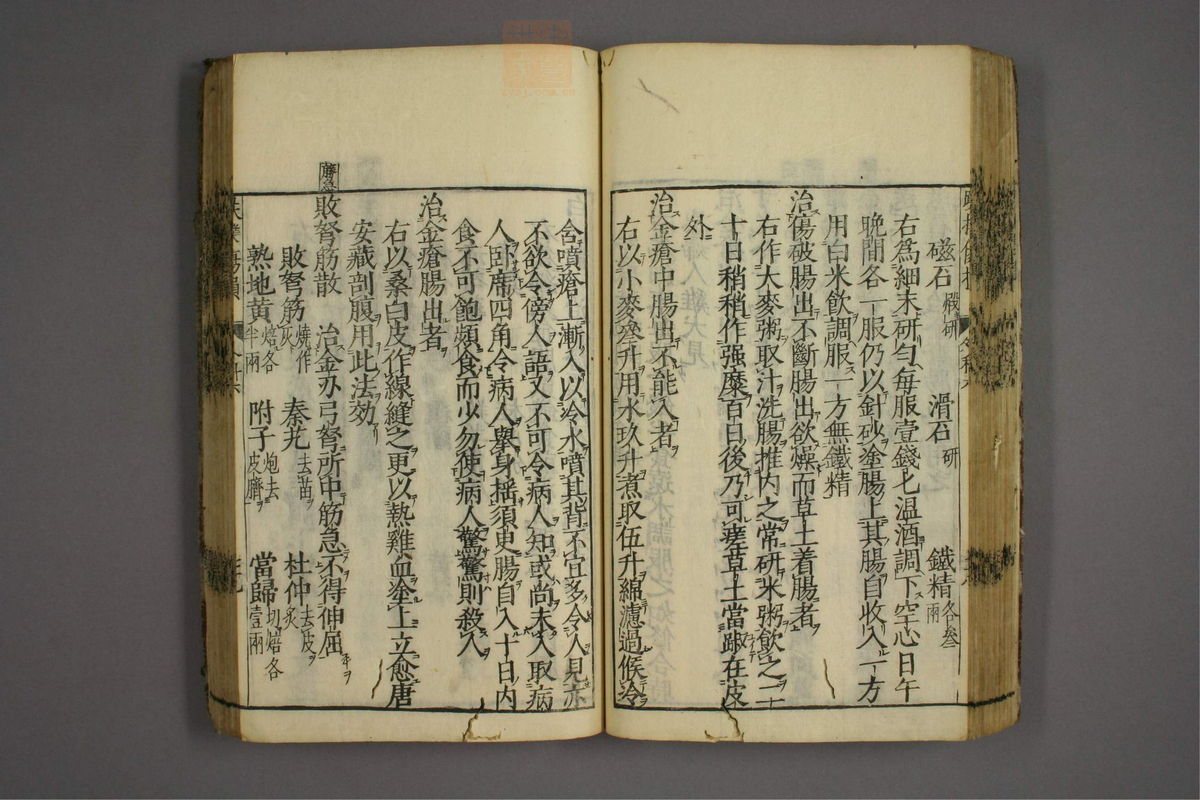 磁石煆研 滑石研 鐵精各叁兩
右爲細末研勻每服壹錢匕溫酒調下空心日午
晚間各一服仍以針砂塗腸上其腸自收入一方
用白米飲調服一方無鐵精
治傷破腸出不斷腸出欲燥而草土着腸者
右作大麥粥取汁洗腸推内之常研米粥飲之二十
十日稍稍作强糜百日後乃可瘥草土當 在皮
外
治金瘡中腸出不能入者
右以小麥 升用水玖升煮取伍升綿濾過候冷
含噴瘡上漸入以冷水噴其背不宜多令人見亦
不欲令傍人語又不可令病人知或尚未入取病
人臥席四角令病人舉身摇須臾腸自入十日内
食不可飽頻食而少勿使病人驚驚則殺人
治金瘡腸出者
右以桑白皮作線縫之更以熱雞血塗上立愈唐
安藏剖腹用此法効
敗弩筋散 治金办弓弩所中筋急不得伸屈
敗弩筋燒作灰 秦艽去苗 杜仲去皮炙
熟地黄焙各半兩 附子炮去皮臍 當歸切焙各壹兩